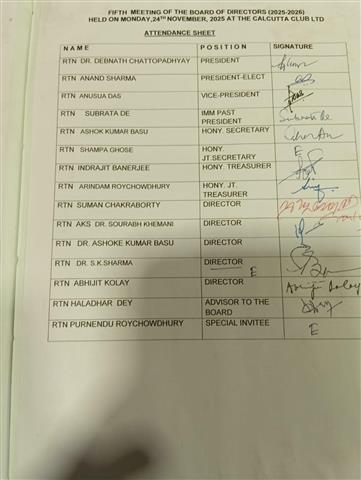 FIFTH MEETING OF THE BOARD OF DIRECTORS (2025-2026)
HELD ON MONDAY,24TH NOVEMBER, 2025 AT THE CALCUTTA CLUB LTD
ATTENDANCE SHEET
NAME POSITION SIGNATURE
RTN DR. DEBNATH CHATTOPADHYAY PRESIDENT
RTN ANAND SHARMA PRESIDENT-ELECT
RTN ANUSUA DAS VICE-PRESIDENT
RTN SUBRATA DE IMM PAST PRESIDENT Subrata De
RTN ASHOK KUMAR BASU HONY. SECRETARY
RTN SHAMPA GHOSE HONY. JT.SECRETARY E
RTN INDRAJIT BANERJEE HONY. TREASURER
RTN ARINDAM ROYCHOWDHURY HONY. JT. TREASURER
RTN SUMAN CHAKRABORTY DIRECTOR
RTN AKS DR. SOURABH KHEMANI DIRECTOR
RTN DR. ASHOKE KUMAR BASU DIRECTOR
RTN DR. S.K.SHARMA DIRECTOR E
RTN ABHIJIT KOLAY DIRECTOR Abhijit Kolay
RTN HALADHAR DEY ADVISOR TO THE BOARD
RTN PURNENDU ROYCHOWDHURY SPECIAL INVITEE E